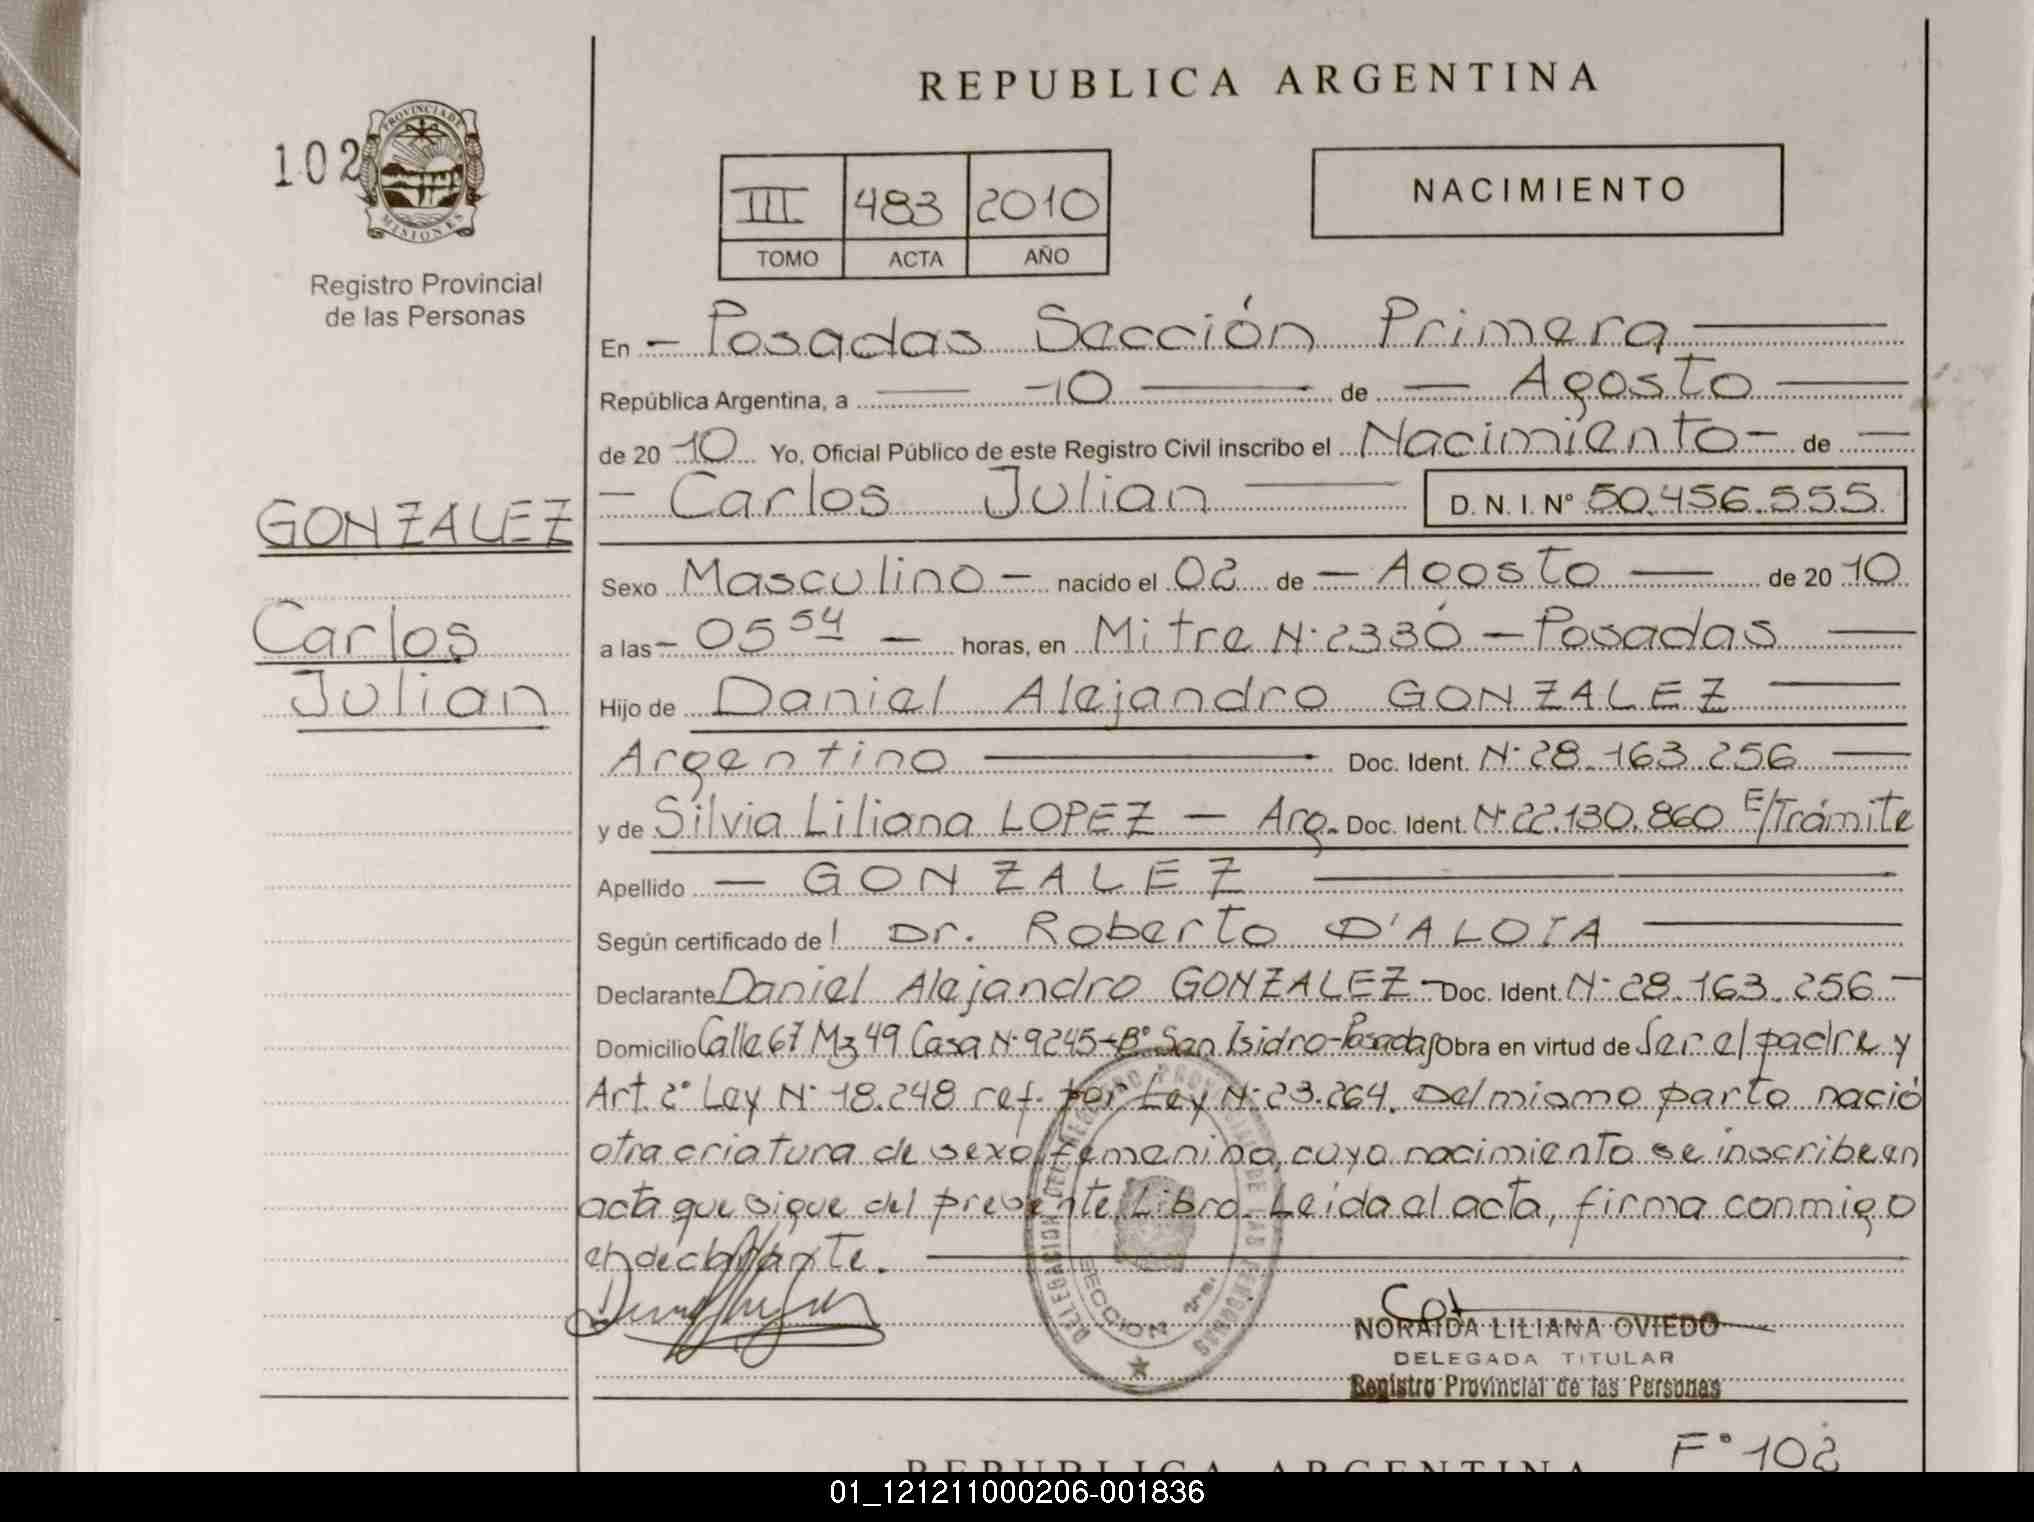 REPUBLICA ARGENTINA
102
PROVINCIA DE
MISIONES
Registro Provincial
de las Personas
III 483 2010
TOMO ACTA AÑO
NACIMIENTO
En - Posadas Sección Primera
República Argentina, a 10 de Agosto
de 20 10 Yo, Oficial Público de este Registro Civil inscribo el Nacimiento - de
Carlos Julian D. N. I. N° 50.456.555
GONZALEZ
Carlos
Julian
Sexo Masculino - nacido el 02 de - Agosto de 20 10
a las - 05 54 - horas, en Mitre N° 2330 - Posadas
Hijo de Daniel Alejandro GONZALEZ
Argentino Doc. Ident. N° 28.163.256
y de Silvia Liliana LOPEZ - Arg. Doc. Ident. N° 22.130.860 E/Trámite
Apellido - GONZALEZ
Según certificado del Dr. Roberto D'ALOIA
Declarante Daniel Alejandro GONZALEZ - Doc. Ident. N° 28.163.256 -
Domicilio Calle 67 Mz 49 Casa N° 9245 - B° San Isidro - Posadas Obra en virtud de Ser el padre y
Art. 2° Ley N° 18.248 ref. por Ley N° 23.264. Del mismo parto nació
otra criatura de sexo femenino, cuyo nacimiento se inscribe en
acta que sigue del presente Libro. Leida el acta, firma conmigo
el declarante.
DELEGACION DEL REGISTRO PROVINCIAL DE LAS PERSONAS
SECCION 1ra.
NORAIDA LILIANA OVIEDO
DELEGADA TITULAR
Registro Provincial de las Personas
F° 102
REPUBLICA ARGENTINA
01_121211000206-001836